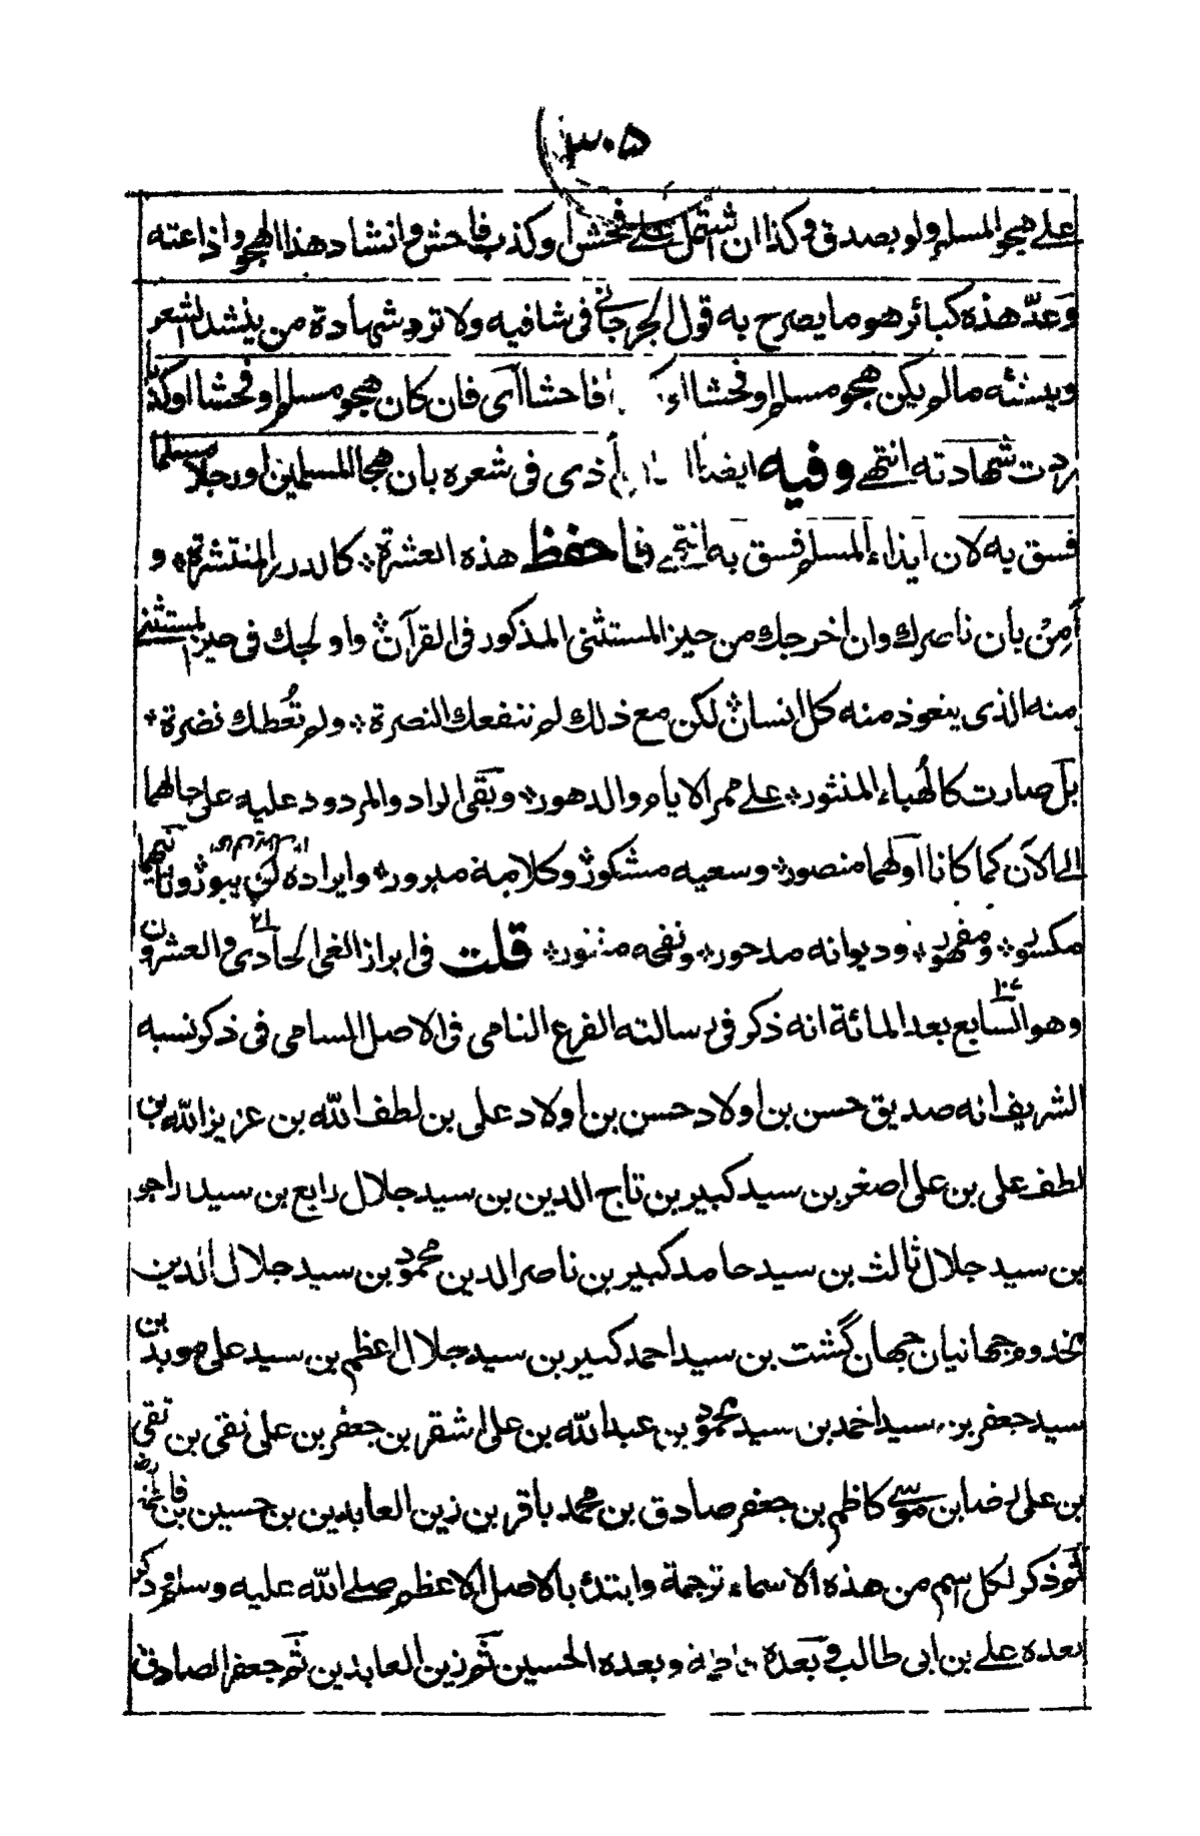 ٣٠٥
على هجو المسلم ولو بصدق وكذا ان اشتمل على فحش او كذب فاحش وانشاد هذا الهجو واذاعته
وعدّ هذه كبائر هو ما يصرح به قول الجرجاني في شافيه ولا ترد شهادة من ينشد الشعر
وينشئه ما لم يكن هجو مسلم او فحشا او فاحشا اى فان كان هجو مسلم او فحشا او كذبا
ردت شهادته انتهى وفيه ايضا اذى في شعره بان هجا المسلمين او رجلا مسلما
فسق به لان ايذاء المسلم فسق به انتهى فاحفظ هذه العشرة * كالدرر المنتشرة * و
أمِنْ بان ناصرك وان اخرجك من حيز المستثنى المذكور في القرآن * واولجك في حيز المستثنى
منه الذى يتعوذ منه كل انسان * لكن مع ذلك لم تنفعك النصرة * ولم تُعطك نضرة *
بل صارت كالهُباء المنثور * على ممر الايام والدهور * وبقى الراد والمردود عليه على حالهما
الى الآن كما كانا اولهما منصور * وسعيه مشكور * وكلامه مبرور * وايراده لن يبور * وثانيهما
مكسور * ومقهور * وديوانه مدحور * ونفحه منثور * قلت في ابراز الغى الحادى والعشرون ٢١
وهو السابع بعد المائة ١٠٧ انه ذكر في رسالته الفرع النامى في الاصل السامى في ذكر نسبه
الشريف انه صديق حسن بن اولاد حسن بن اولاد على بن لطف الله بن عزيز الله بن
لطف على بن على اصغر بن سيد كبير بن تاج الدين بن سيد جلال رابع بن سيد راجو
بن سيد جلال ثالث بن سيد حامد كبير بن ناصر الدين محمود بن سيد جلال الدين
مخدوم جهانيان جهان گشت بن سيد احمد كبير بن سيد جلال اعظم بن سيد على مويد بن
سيد جعفر بن سيد احمد بن سيد محمود بن عبد الله بن على اشقر بن جعفر بن على نقى بن تقى
بن على رضا بن موسى كاظم بن جعفر صادق بن محمد باقر بن زين العابدين بن حسين بن فاطمة رض
ثم ذكر لكل اسم من هذه الاسماء ترجمة وابتدئ بالاصل الاعظم صلى الله عليه وسلم وذكر
بعده على بن ابى طالب وبعده فاطمة وبعده الحسين ثم زين العابدين ثم جعفر الصادق